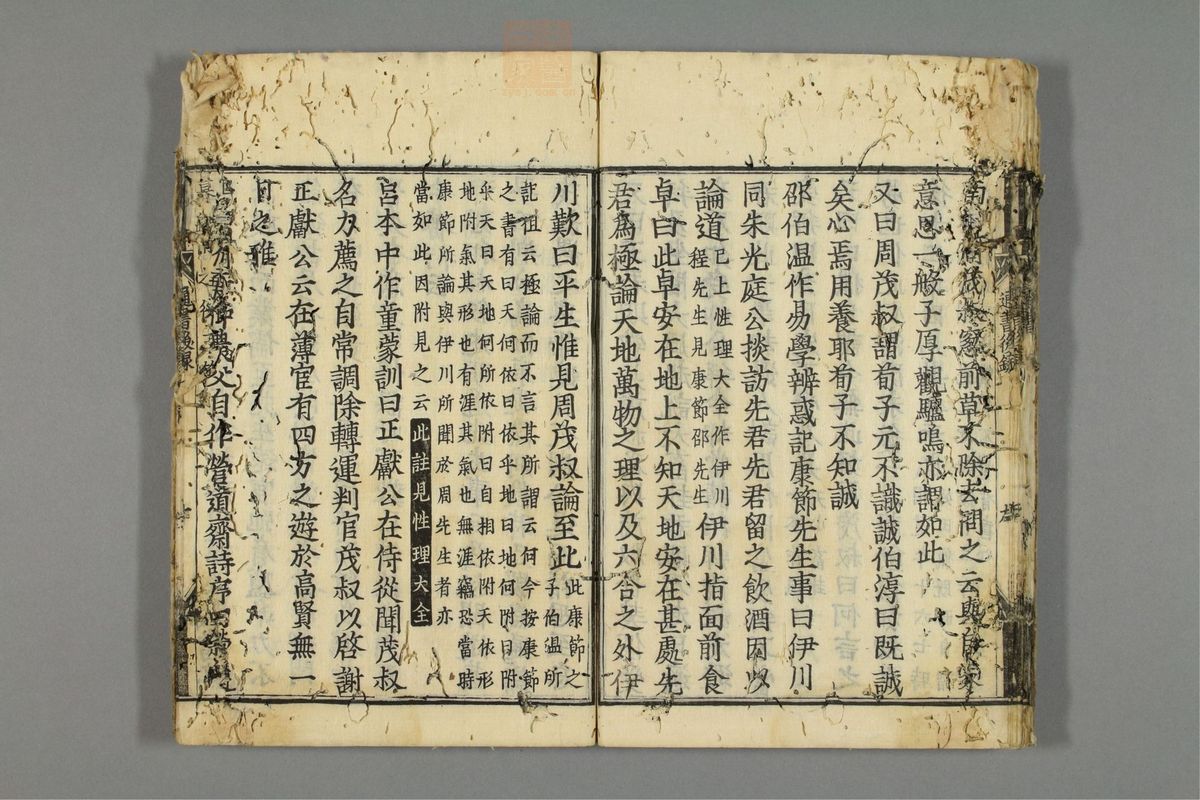 茂叔窓前草不除去問之云與自家
意思一般子厚觀驢鳴亦謂如此
又曰周茂叔謂荀子元不識誠伯淳曰既誠
矣心焉用養耶荀子不知誠
邵伯温作易學辨惑記康節先生事曰伊川
同朱光庭公掞訪先君先君留之飲酒因以
論道已上性理大全作伊川程先生見康節邵先生伊川指面前食
卓曰此卓安在地上不知天地安在甚處先
君爲極論天地萬物之理以及六合之外伊
川歎曰平生惟見周茂叔論至此此康節之子伯温所
註祖云極論而不言其所謂云何今按康節
之書有曰天何依曰依乎地曰地何附曰附
乎天曰天地何所依附曰自相依附天依形
地附氣其形也有涯其氣也無涯竊恐當時
康節所論與伊川所聞於周先生者亦
當如此因附見之云此註見性理大全
呂本中作童蒙訓曰正獻公在侍從聞茂叔
名力薦之自常調除轉運判官茂叔以啓謝
正獻公云在薄宦有四方之遊於高賢無一
日之雅
父自作營道齋詩序曰營